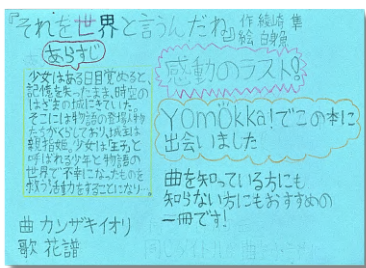 『それを世界と言うんだね』作 綾崎 隼
絵 白身魚
あらすじ
少女はある日目覚めると、
記憶を失ったまま、時空の
はざまの城にきていた。
そこには物語の登場人物
たちがくらしており、城主は
親指姫。少女は「王子」と
呼ばれる少年と物語の
世界で不幸になったものを
救う活動をすることになり…。
曲 カンザキイオリ
歌 花譜
感動のラスト!
YOMOkka!でこの本に
出会いました
曲を知っている方にも
知らない方にもおすすめの
一冊です!